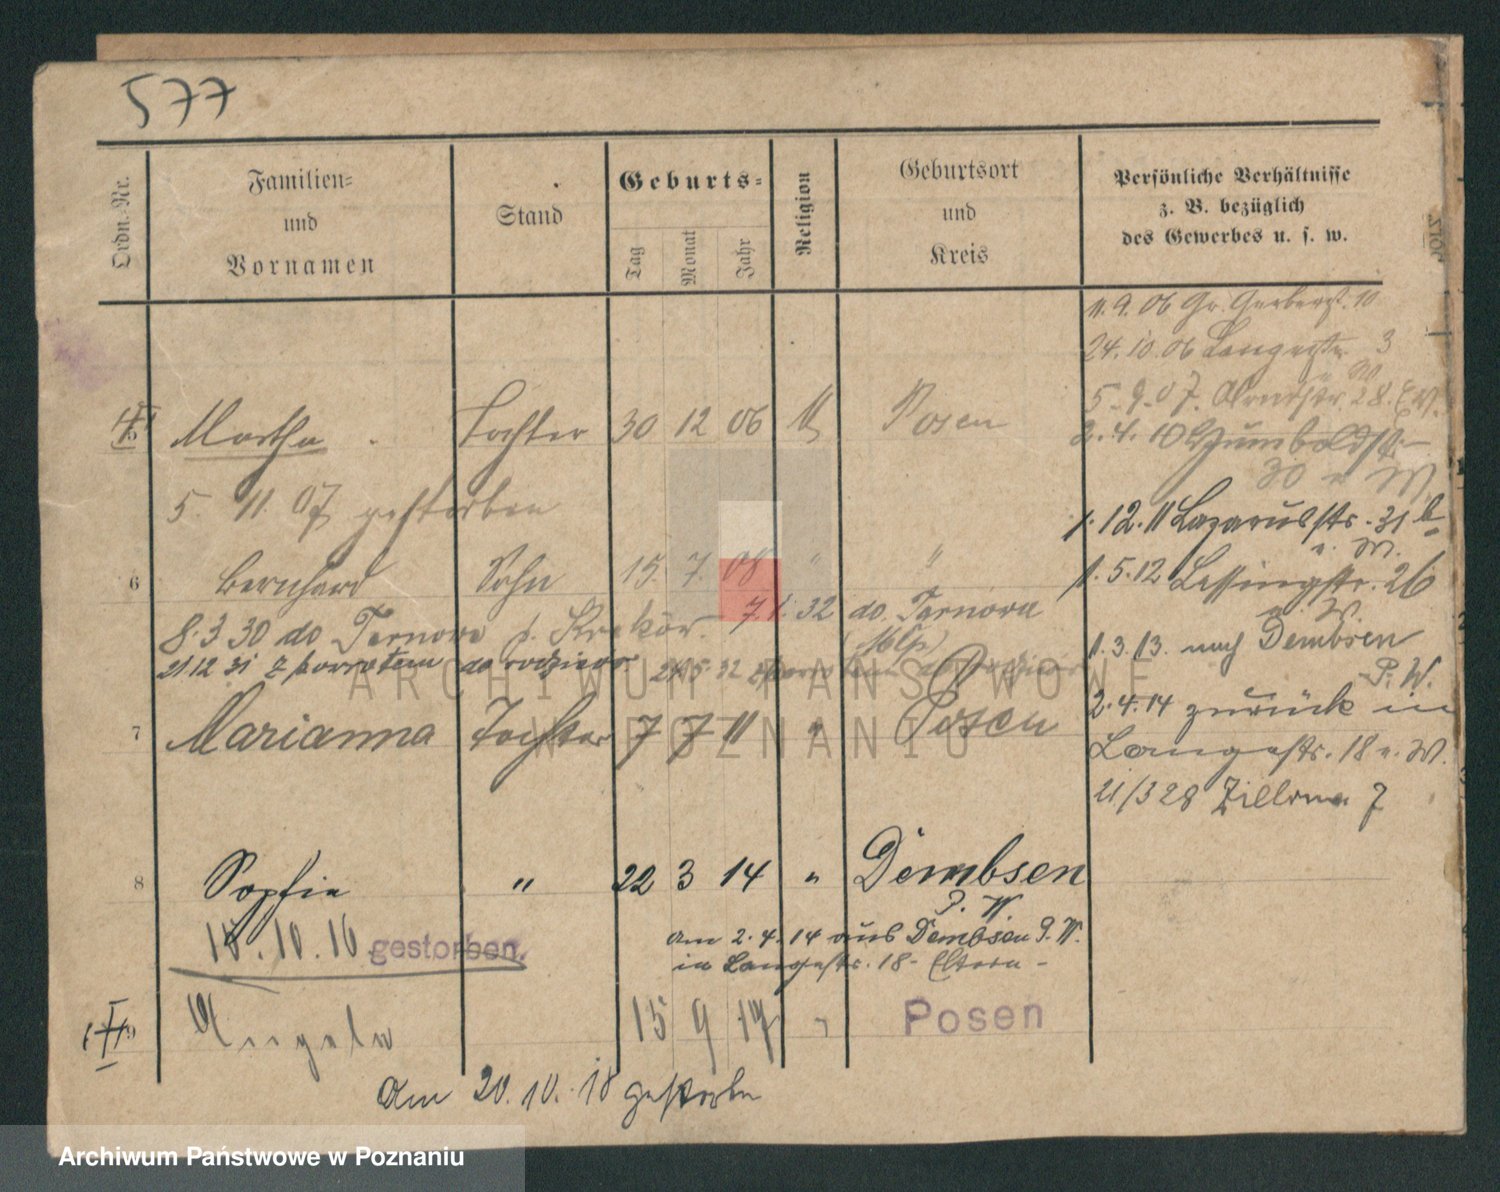 577
Ordn.-Nr.
Familien-
und
Vornamen
Stand
Geburts-
Tag
Monat
Jahr
Religion
Geburtsort
und
Kreis
Persönliche Verhältnisse
z. B. bezüglich
des Gewerbes u. s. w.
11. 9. 06 Gr. Gerberst. 10
24. 10. 06 Langestr. 3
5. 9. 07. Arndstr. 28. E. W.
5 Martha Tochter 30 12 06 Posen
2. 4. 10 Humboldtstr.
30 v W.
5. 11. 07 gestorben
1. 12. 11 Lazarusstr. 31 b
v. W.
6 Bernhard Sohn 15. 7. 08 " "
1. 5. 12 Lessingstr. 26
v W.
8. 3 30 do Ternowo p. 7. 1. 32 do Tarnova
1. 3. 13. nach Dembsen
P. W.
21 12 31 z powrotem do 21. 5. 32
7 Marianna Tochter 7 7 11 " Posen
2. 4. 14 zurück in
Langestr. 18 v. W.
21/3 28 7
8 Sophie " 22 3 14 " Dembsen
P. W.
18. 10. 16 gestorben.
am 2. 4. 14 aus Dembsen P. W.
in Langestr. 18 - Eltern -
9 Angela 15 9 17 " Posen
am 20. 10. 18 gestorben
ARCHIWUM PAŃSTWOWE
W POZNANIU
Archiwum Państwowe w Poznaniu